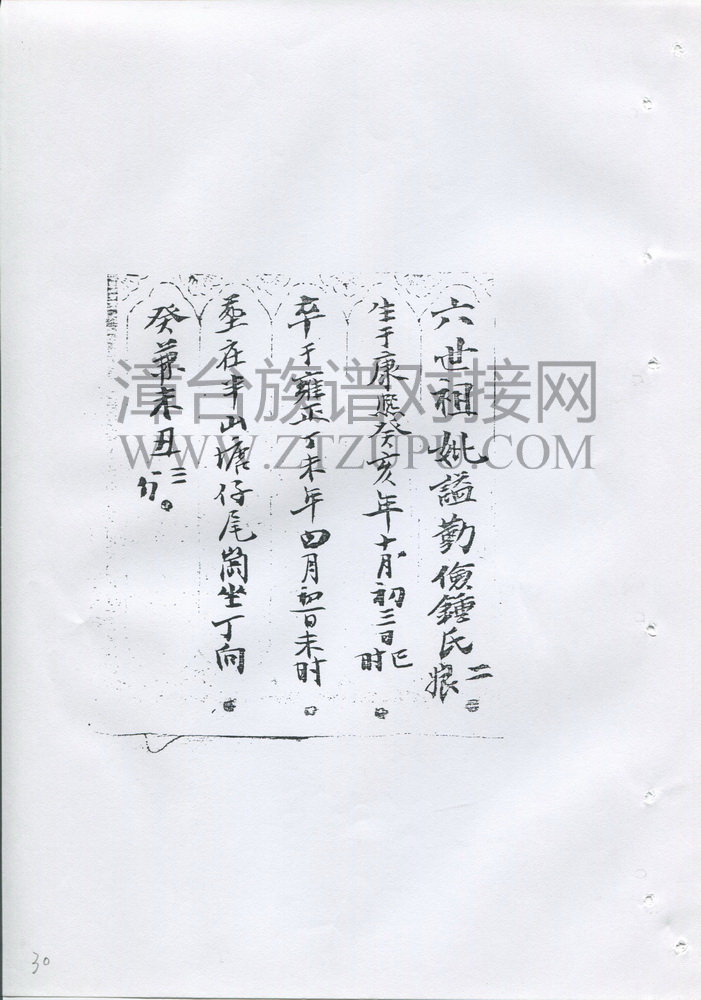 六世祖妣謚勤儉鍾氏二娘
生于康熙癸亥年十月初三日巳时
卒于雍正丁未年四月初一日未时
坐在半山塘仔尾崗坐丁向
癸兼未丑三分
漳台族谱对接网
WWW.ZTZUPU.COM
30